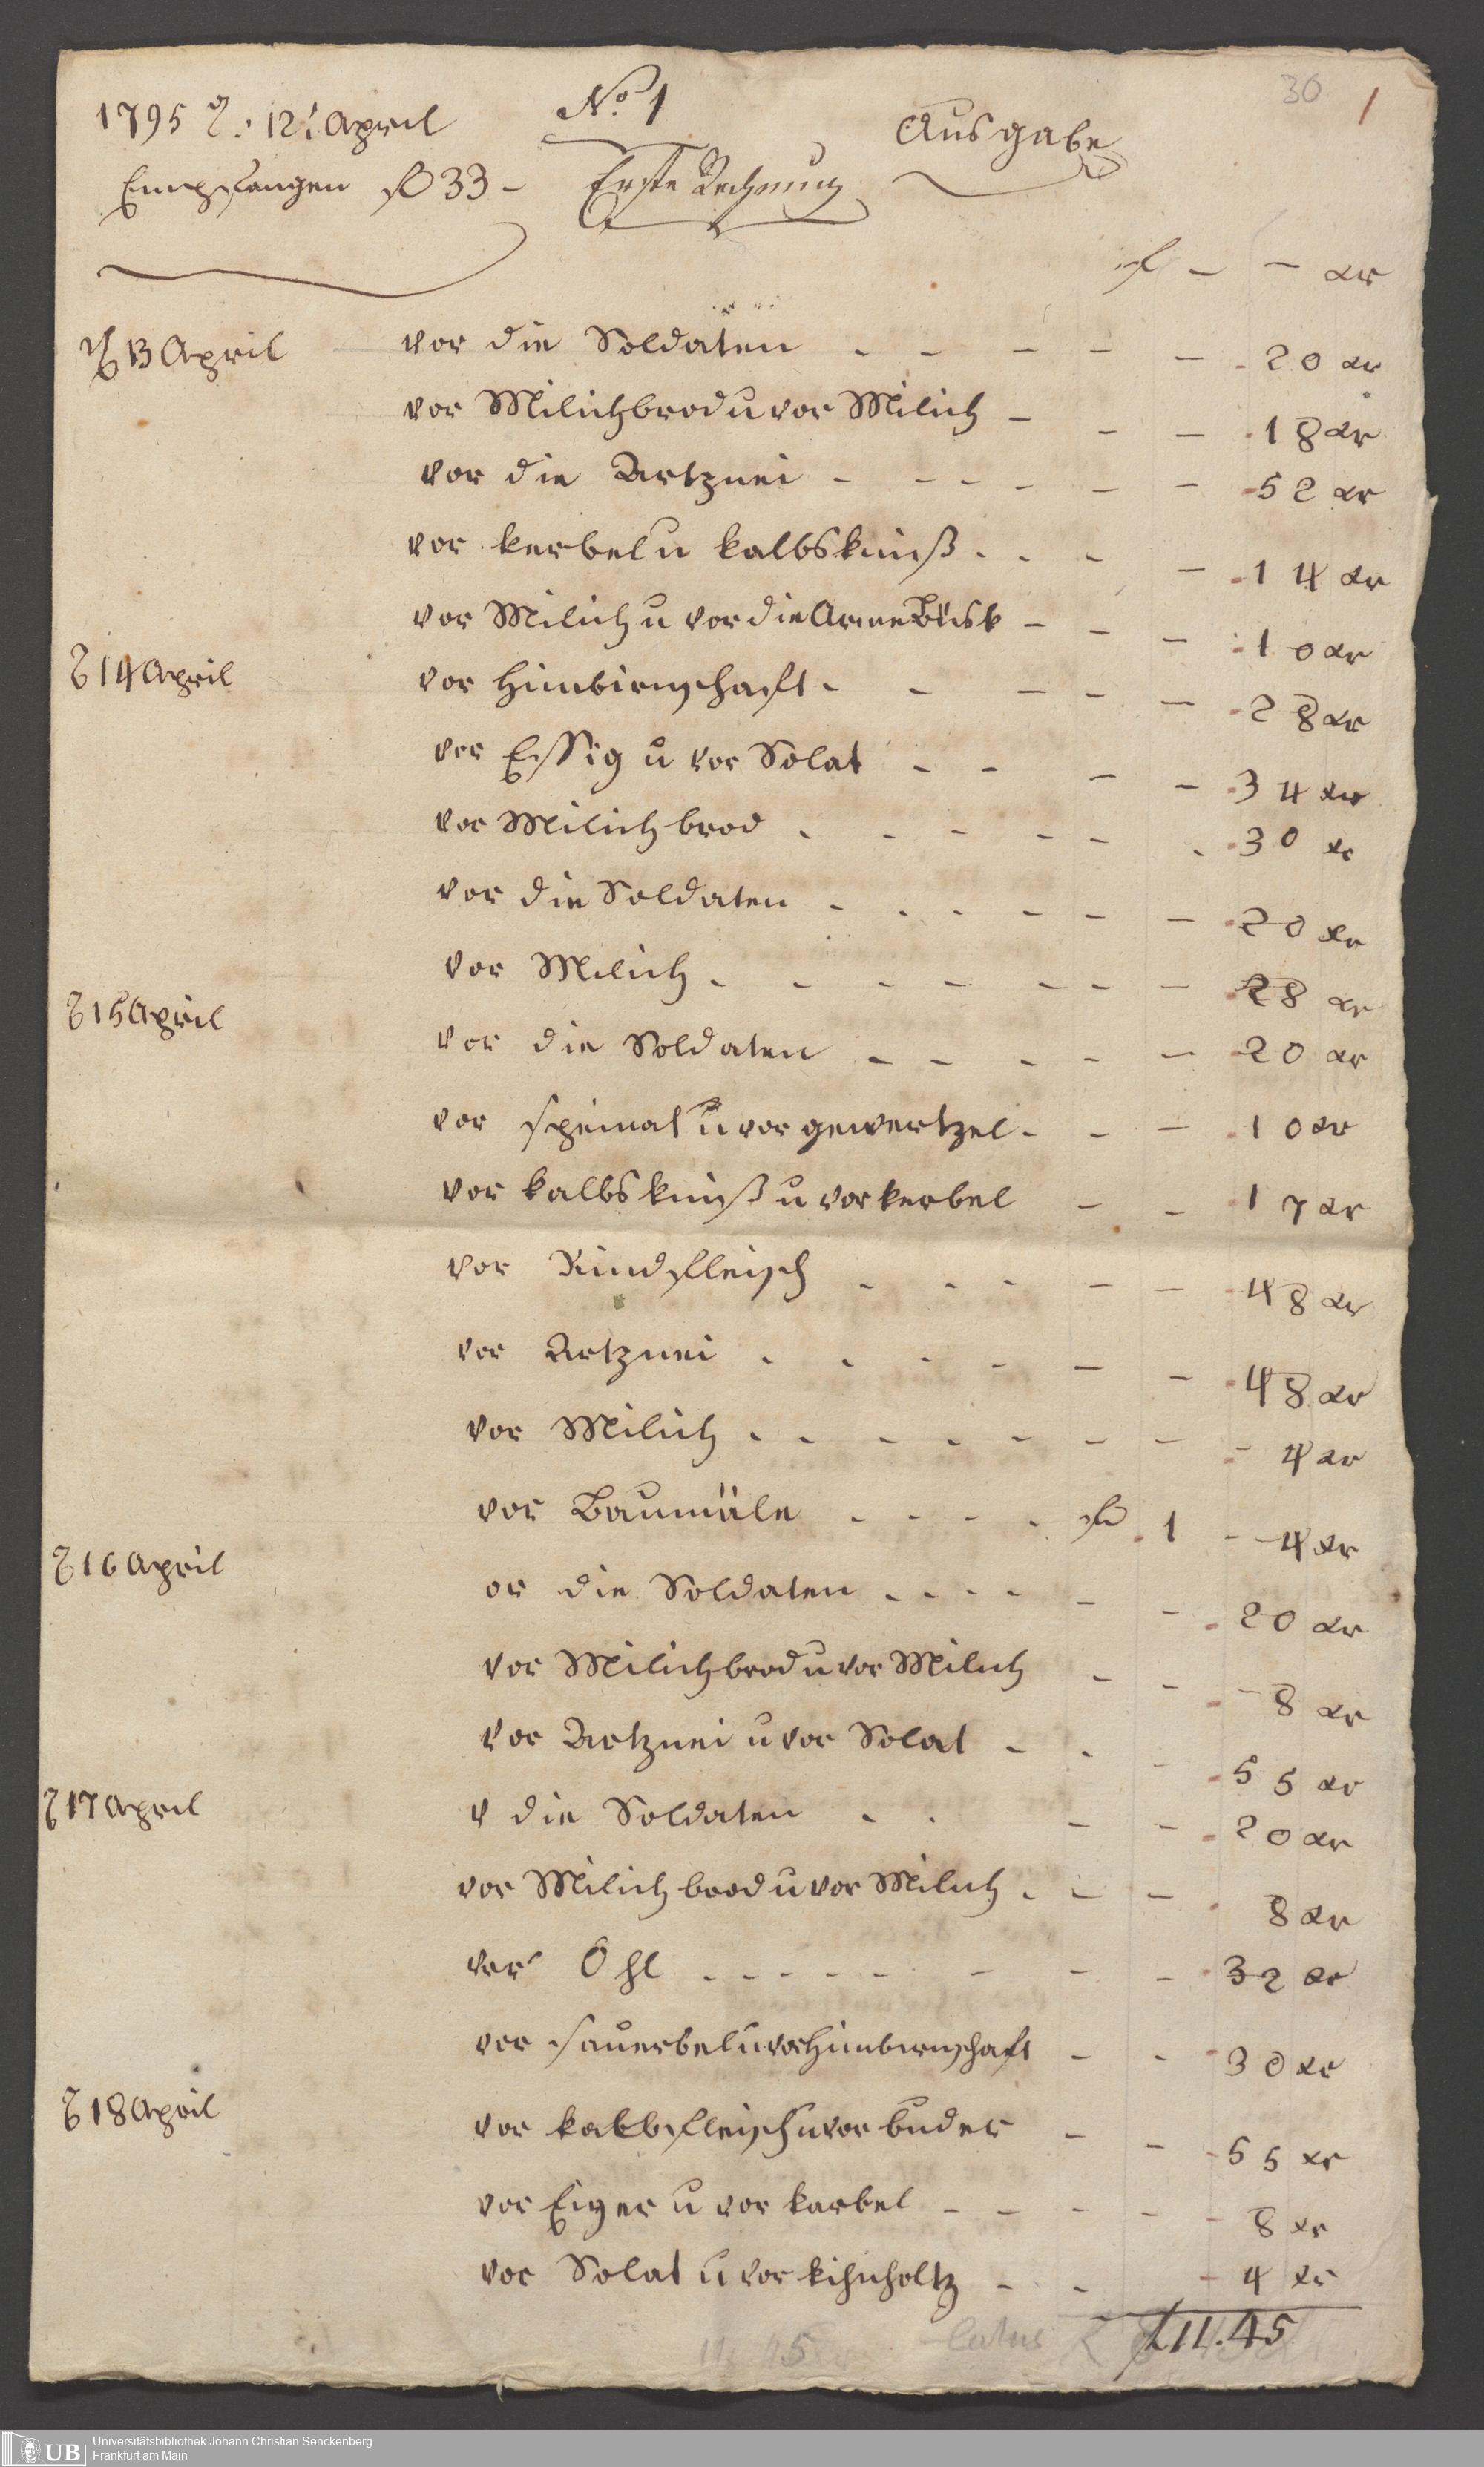 30 1
1795 d: 12t April No 1 Ausgabe
Empfangen fl 33 – Erste Rechnung
fl – – xr
d 13 April vor die Soldaten – – – – – 20 xr
vor Milichbrod u vor Milich – – – 18 xr
vor die Artznei – – – – – – 52 xr
vor kerbel u kalbskniß – – – 14 xr
vor Milich u vor die Arme – – – 10 xr
d 14 April vor Himbirnschaft – – – – – 28 xr
vor Essig u vor Solat – – – – 34 xr
vor Milichbrod – – – – – – 30 xr
vor die Soldaten – – – – – – 20 xr
vor Milich – – – – – – – 28 xr
d 15 April vor die Soldaten – – – – – 20 xr
vor speinat u vor gewertzel – – – 10 xr
vor kalbskniß u vor kerbel – – 17 xr
vor Rindfleisch – – – – – 48 xr
vor Artznei – – – – – – 48 xr
vor Milich – – – – – – – – 4 xr
vor Baumäle – – – – fl 1 – 4 xr
d 16 April or die Soldaten – – – – – – 20 xr
vor Milichbrod u vor Milich – – – 8 xr
vor Artznei u vor Solat – – – 55 xr
d 17 April v die Soldaten – – – – 20 xr
vor Milichbrod u vor Milich – – – 8 xr
vor Öhl – – – – – – – – 32 xr
vor sauerbel u vor Himbirnschaft – – 30 xr
d 18 April vor kalbfleisch u vor buder – – 55 xr
vor Eiyer u vor karbel – – – – – 8 xr
vor Solat u vor kihnholtz – – – 4 xr
11. 45 latus f 11.45
UB Universitätsbibliothek Johann Christian Senckenberg
Frankfurt am Main